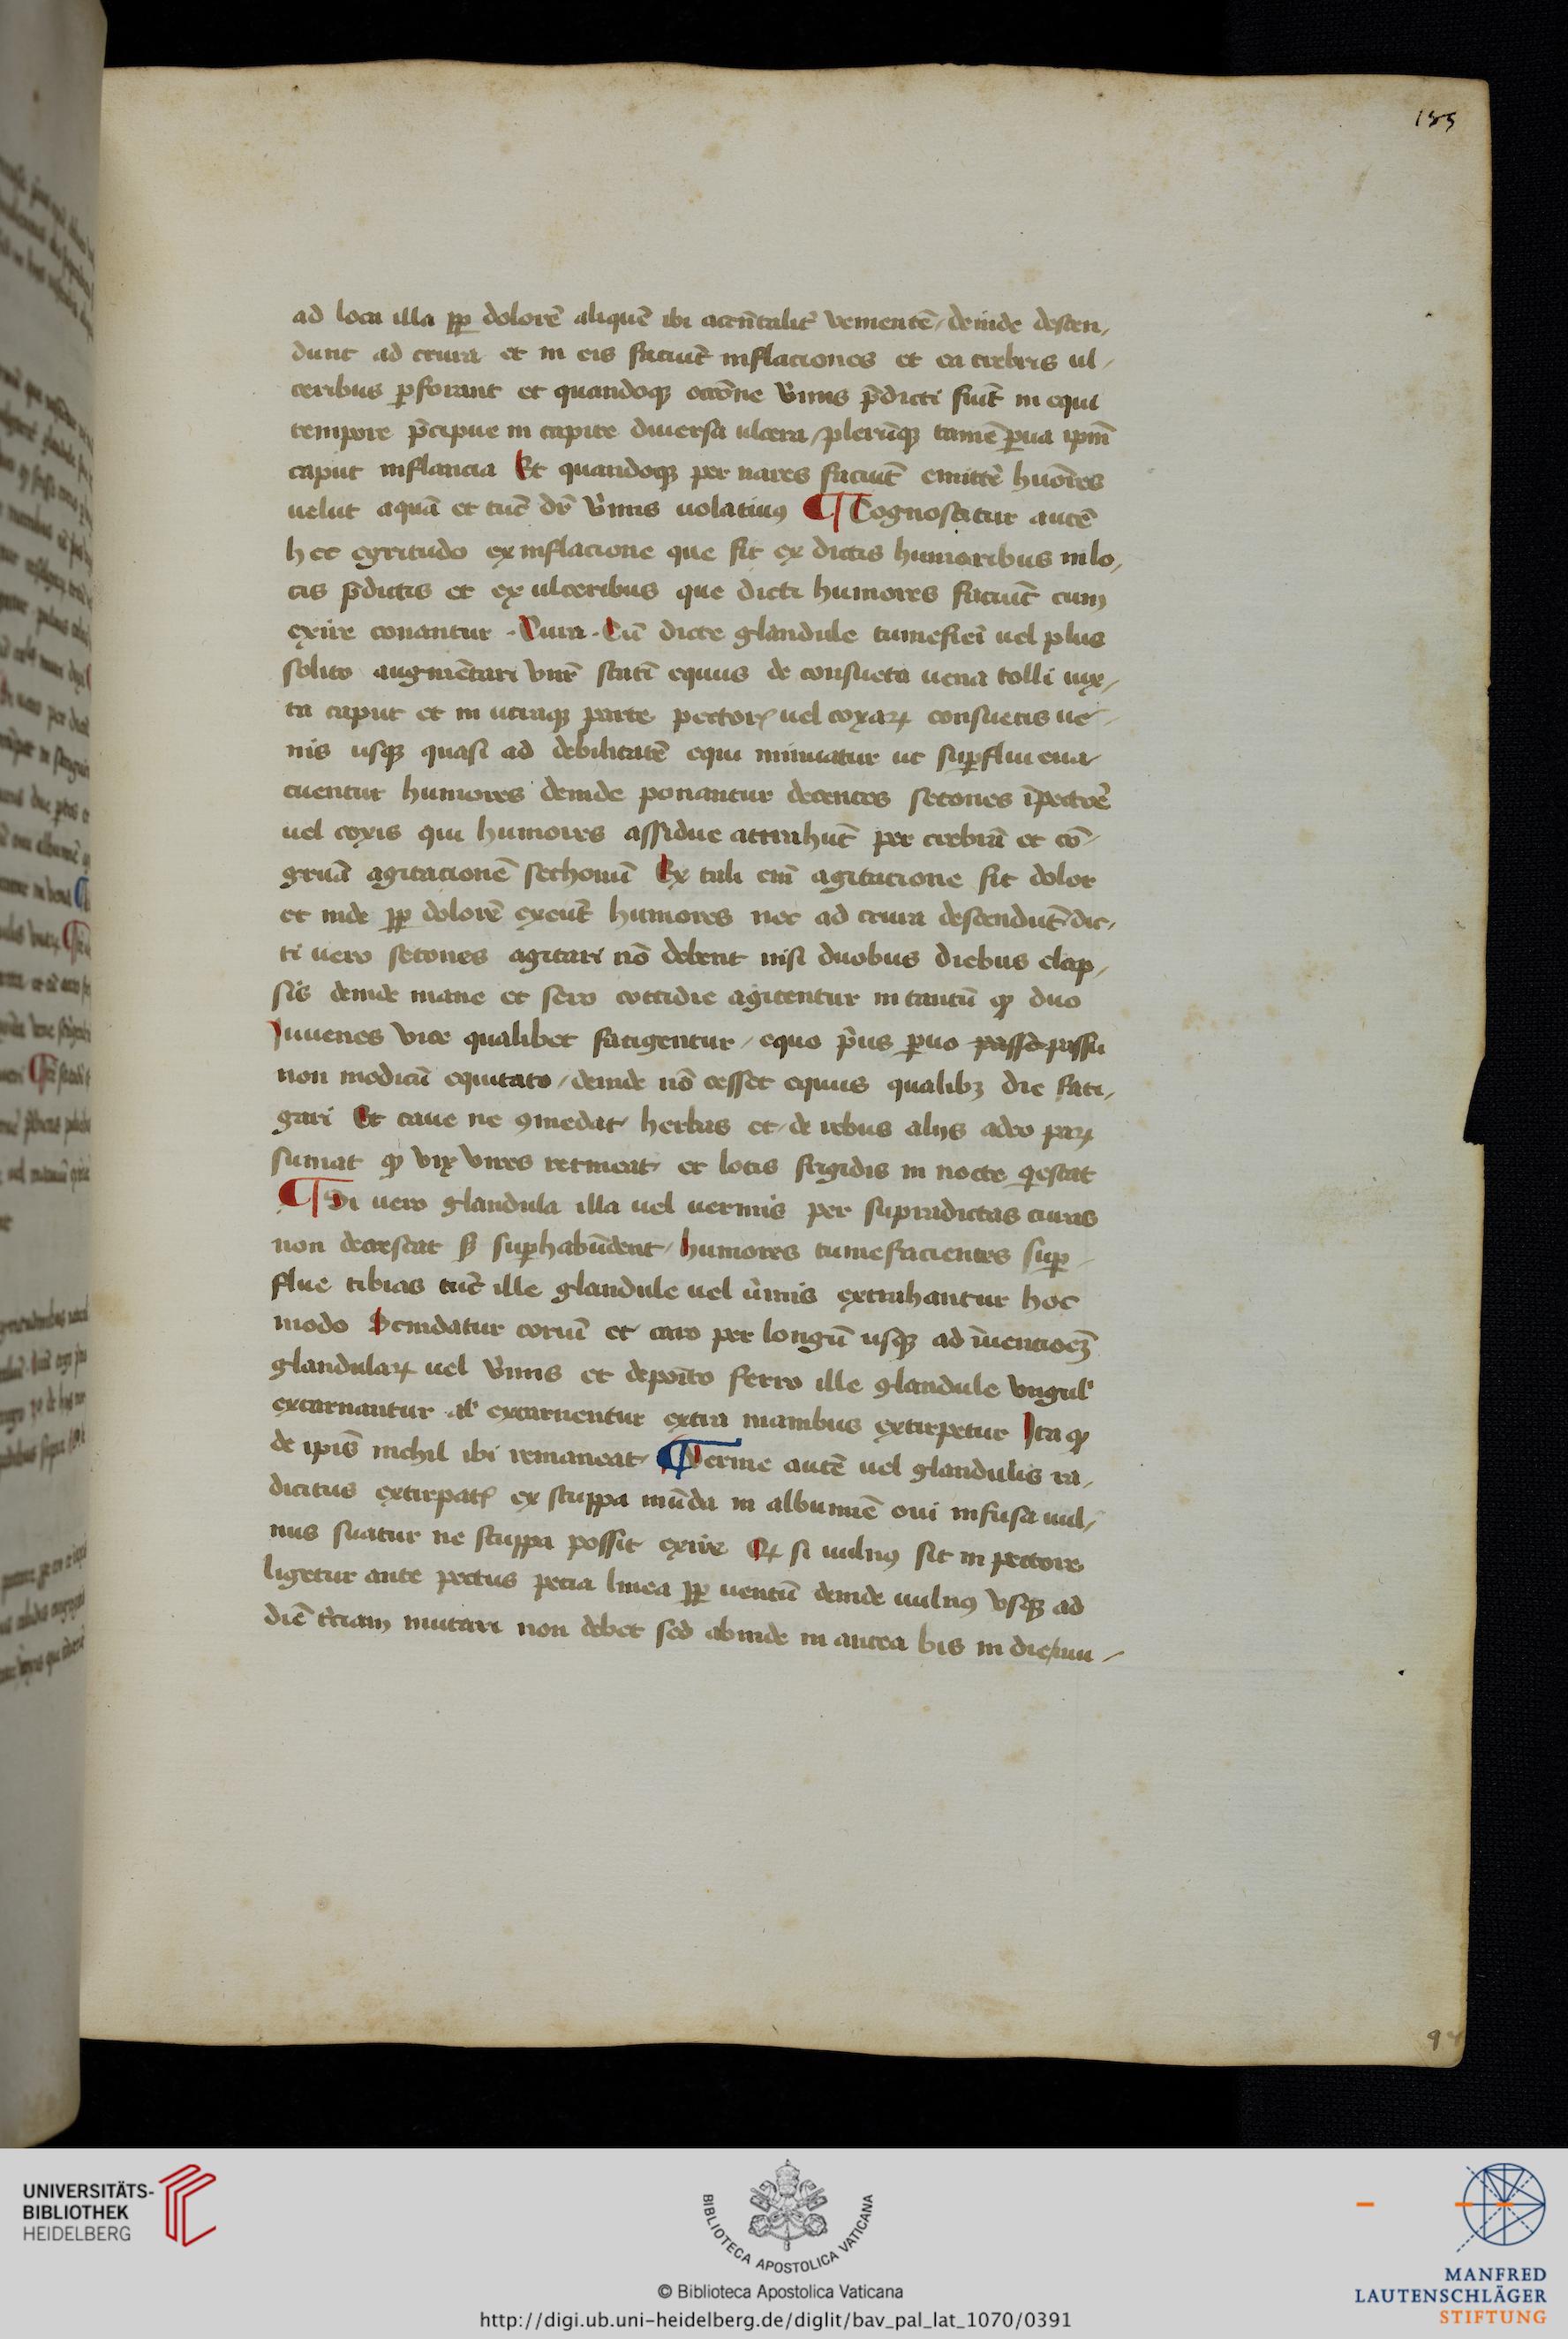 155
ad loca illa ꝓp dolorē aliquē ibi accn̄talit᷑ venientē / deinde descen /
dunt ad crura et in eis faciūt inflaciones et ea crebris ul /
ceribus ꝑforant et quandoqꝫ occōne v̓mis p̄dicti fiūt in equi
tempore p̄cipue in capite diuersa ulcera / plerūqꝫ tamē ꝑua ipm̄
caput inflancia Et quandoqꝫ per nares faciūt emittē huōres
uelut aquā et tūc dr̄ v̓mis uolatiuꝯ ¶ Cognoscitur autē
hec egritudo ex inflacione que fit ex dictis humoribus in lo /
cis p̄dictis et ex ulceribus que dicti humores faciūt cum
exire conantur · Cura · Cū dicte glandule tumefieri uel plus
solito augmētari vn̄r statī equus de consueta uena colli iux /
ta caput et in utraqꝫ parte pectorꝭ uel coxaꝝ consuetis ue /
nis usqꝫ quasi ad debilitatē equi minuatur ut suꝑflui eua /
cuentur humores deinde ponantur decentes setones ī pectore
uel coxis qui humores assidue attrahūt per crebrā et cō /
gruā agitacionē sethonū Ex tali eni᷑ agitacione fit dolor
et inde ꝓp dolorē exeūt humores nec ad crura descendūt dic /
ti uero setones agitari nō debent nisi duobus diebus elap /
sis deinde mane et sero cottidie agitentur in tantū ꝙ duo
Iuuenes vice qualibet fatigentur / equo p̓us ꝑuo passe passu
non modicū equitato / deinde nō cesset equus qualibꝫ die fati /
gari Et caue ne ꝯmedat herbas et de rebus alijs adeo paꝝ
sumat ꝙ vix vires retineat et locis frigidis in nocte q̓escat
¶ Si uero glandula illa uel uermis per supradictas curas
non decrescat sꝫ suꝑhabūdent humores tumefacientes suꝑ /
flue tibias tūc ille glandule uel v̓mis extrahantur hoc
modo Scindatur coriū et caro per longū usqꝫ ad īuentioeꝫ
glandulaꝝ uel v̓mis et deposito ferro ille glandule vngul᷑
excarnantur al᷑ excarnentur extra manibus extirpetur Ita ꝙ
de ipis̄ nichil ibi remaneat ¶ Verme autē uel glandulis ra /
dicitus extirpatꝭ ex stuppa mūda in albumīe oui infusa uul /
nus suatur ne stuppa possit exire Qꝝ si uulnꝯ sit in pectore
ligetur ante pectus pecia linea ꝓp uentū deinde uulnꝯ vsqꝫ ad
diē tr̓ciam mutari non debet sed abinde in antea bis in die
UNIVERSITÄTS-
BIBLIOTHEK
HEIDELBERG
BIBLIOTECA APOSTOLICA VATICANA
© Biblioteca Apostolica Vaticana
http://digi.ub.uni-heidelberg.de/diglit/bav_pal_lat_1070/0391
MANFRED
LAUTENSCHLÄGER
STIFTUNG